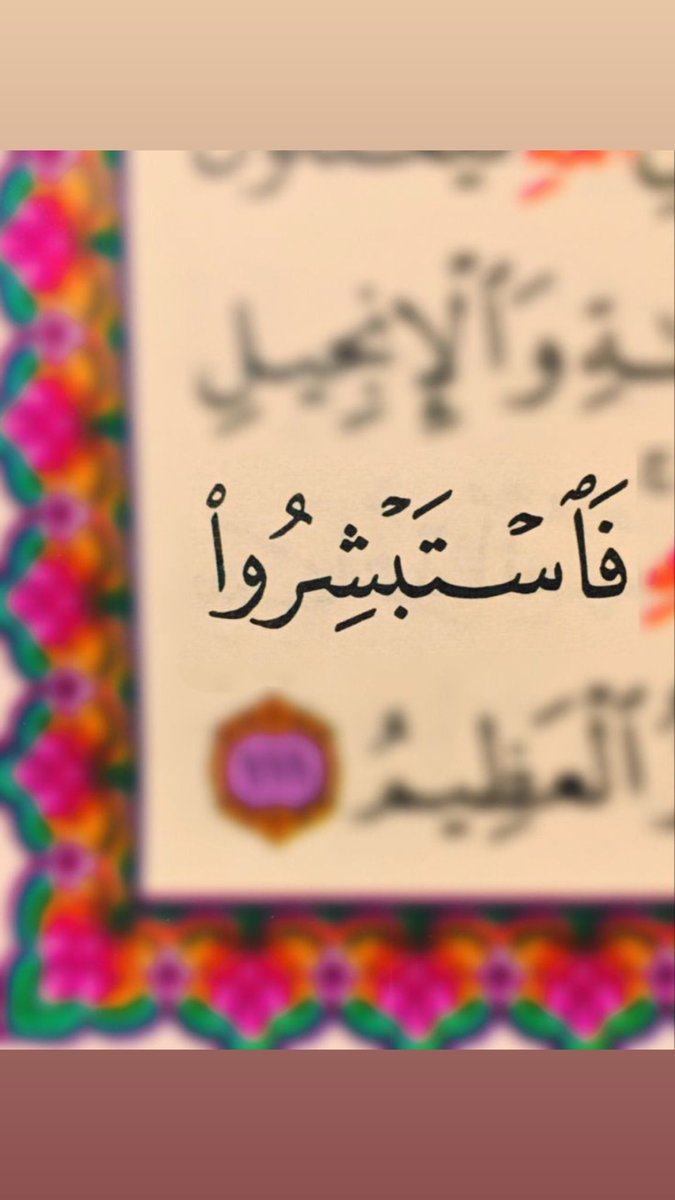 وَٱلْإِنجِيلِ
فَٱسْتَبْشِرُوا۟
ٱلْعَظِيمُ ١١١